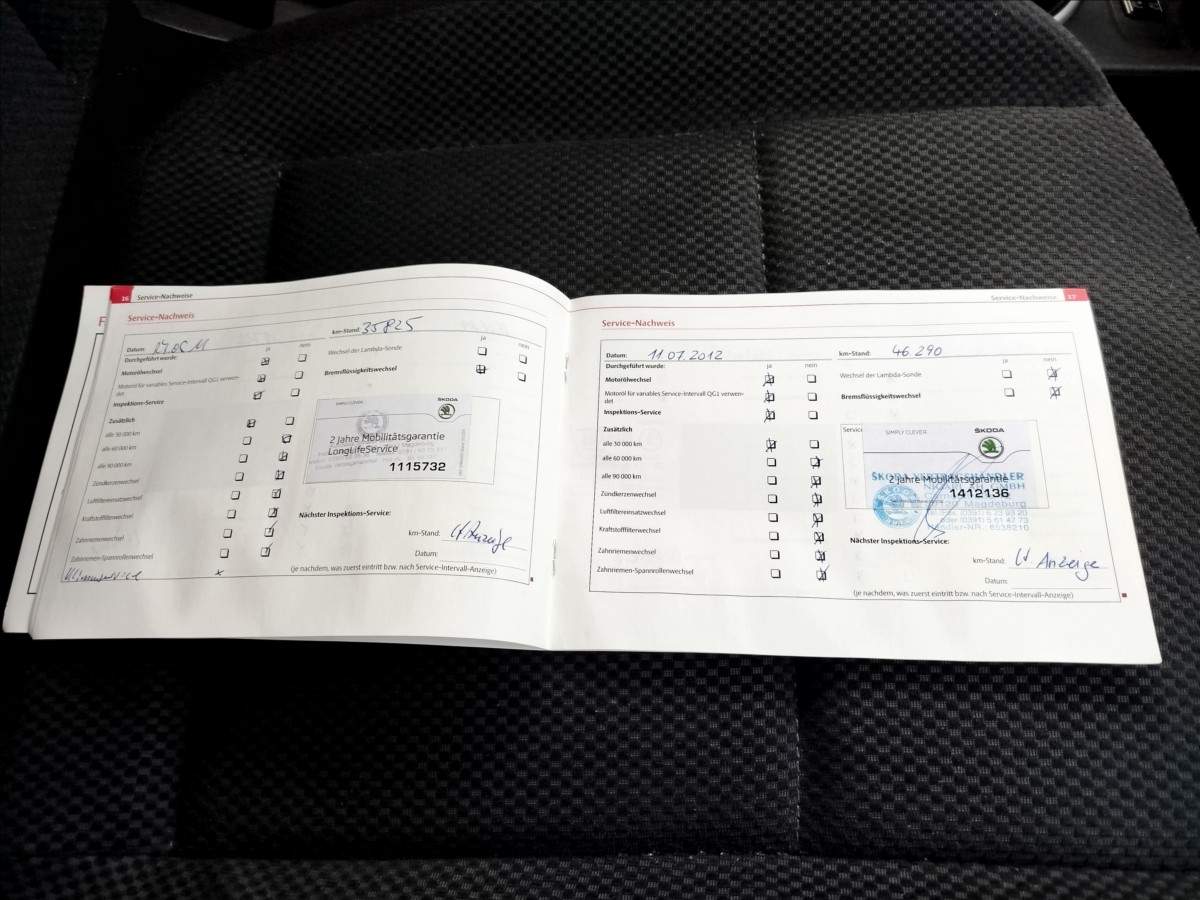 16 Service-Nachweise
Service-Nachweis
Datum: km-Stand: 35825
Durchgeführt wurde: ja nein ja nein
Motorölwechsel Wechsel der Lambda-Sonde
Motoröl für variables Service-Intervall QG1 verwen-
det Bremsflüssigkeitswechsel
Inspektions-Service
Zusätzlich
alle 30 000 km
alle 60 000 km
alle 90 000 km
Zündkerzenwechsel
Luftfiltereinsatzwechsel
Kraftstofffilterwechsel
Zahnriemenwechsel
Zahnriemen-Spannrollenwechsel
SIMPLY CLEVER ŠKODA
2 Jahre Mobilitätsgarantie
LongLifeService
1115732
Nächster Inspektions-Service:
km-Stand: lt Anzeige
Datum:
(je nachdem, was zuerst eintritt bzw. nach Service-Intervall-Anzeige)
Service-Nachweise 17
Service-Nachweis
Datum: 11.07.2012 km-Stand: 46 290
Durchgeführt wurde: ja nein ja nein
Motorölwechsel Wechsel der Lambda-Sonde
Motoröl für variables Service-Intervall QG1 verwen-
det Bremsflüssigkeitswechsel
Inspektions-Service
Zusätzlich
alle 30 000 km
alle 60 000 km
alle 90 000 km
Zündkerzenwechsel
Luftfiltereinsatzwechsel
Kraftstofffilterwechsel
Zahnriemenwechsel
Zahnriemen-Spannrollenwechsel
Service
SIMPLY CLEVER ŠKODA
ŠKODA VERTRAGSHÄNDLER
2 Jahre Mobilitätsgarantie
GMBH
1412136
Magdeburg
(0391) 5 61 42 73
Nächster Inspektions-Service:
km-Stand: lt Anzeige
Datum:
(je nachdem, was zuerst eintritt bzw. nach Service-Intervall-Anzeige)